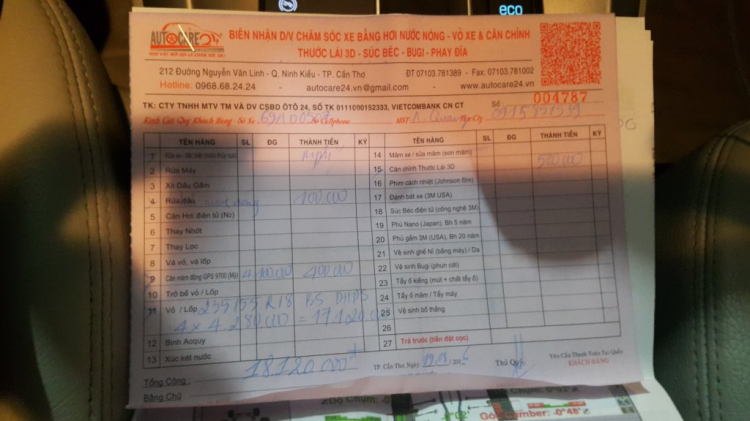 eco
AUTOCARE 24
BIÊN NHẬN D/V CHĂM SÓC XE BẰNG HƠI NƯỚC NÓNG - VỎ XE & CÂN CHỈNH
THƯỚC LÁI 3D - SÚC BÉC - BUGI - PHAY ĐĨA
212 Đường Nguyễn Văn Linh - Q. Ninh Kiều - TP. Cần Thơ ĐT 07103.781389 - Fax: 07103.781002
Hotline: 0968.68.24.24 - autocare24.vn@gmail.com - www.autocare24.vn
TK: CTY TNHH MTV TM VÀ DV CSBD ÔTÔ 24, SỐ TK 0111000152333, VIETCOMBANK CN CT Số 004787
Kính Gửi Quý Khách Hàng - Số Xe
TÊN HÀNG SL ĐG THÀNH TIỀN KÝ
1
2 Rửa Máy
3 Xịt Dầu Gầm
4 100.000
5 Cân Hơi điện tử (No)
6 Thay Nhớt
7 Thay Lọc
8 Vá vỏ, vá lốp
9 Cân mâm động GPS 9700 (Mỹ) 4 100.000 400.000
10 Trở bố vỏ / Lốp
11 Vỏ / Lốp 235/55 R18 BS
4 x 4.280.000 = 17.120.000
12 Bình Acquy
13 Xúc két nước
TÊN HÀNG SL ĐG THÀNH TIỀN KÝ
14 Mâm xe / sửa mâm (sơn mâm)
15 Cân chỉnh Thước Lái 3D 500.000
16 Phim cách nhiệt (Johnson film)
17 Đánh bát xe (3M USA)
18 Súc Béc điện tử (công nghệ 3M)
19 Phủ Nano (Japan), Bh 5 năm
20 Phủ gầm 3M (USA), Bh 20 năm
21 Vệ sinh ghế Nỉ (bằng máy) / Da
22 Vệ sinh Bugi (phun cát)
23 Tẩy ố kiếng (mút + chất tẩy ố)
24 Tẩy ố mâm / Tẩy máy
25 Vệ sinh bố thắng
26
27 Trả trước (tiền đặt cọc)
Tổng Cộng : 18.120.000đ
Bằng Chữ
TP. Cần Thơ, Ngày
Thủ Quỹ
Yêu Cầu Thanh Toán Tại Quầy
KHÁCH HÀNG
Camber: -0°48'